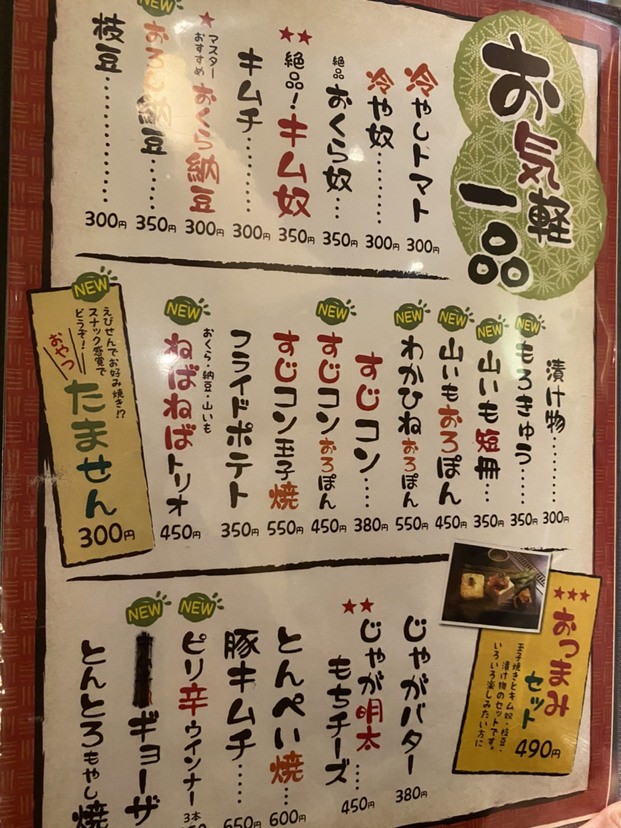 お気軽一品
冷やしトマト 300円
冷や奴 300円
絶品 おくら奴 350円
★★
絶品！キム奴 350円
キムチ 300円
★
マスターおすすめ
おくら納豆 300円
NEW
おろし納豆 350円
枝豆 300円
漬け物 300円
NEW
もろきゅう 350円
NEW
山いも短冊 350円
NEW
山いもおろぽん 450円
NEW
わかひねおろぽん 550円
すじコン 380円
NEW
すじコンおろぽん 450円
すじコン玉子焼 550円
フライドポテト 350円
NEW
おくら・納豆・山いも
ねばねばトリオ 450円
NEW
えびせんでお好み焼き!?
スナック感覚で
どうぞ！
おやつ
たません
300円
★★★
おつまみ
セット
玉子焼きとキム奴・枝豆・
漬け物のセットです。
いろいろ楽しみたい方に
490円
じゃがバター 380円
★★
じゃが明太
もちチーズ 450円
とんぺい焼 600円
豚キムチ 650円
NEW
ピリ辛ウインナー
3本
NEW
ギョーザ
とんとろもやし焼